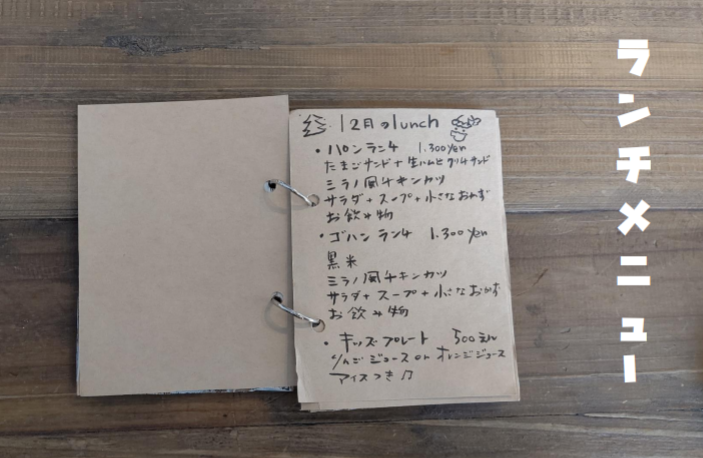 ランチメニュー
12月のlunch
・パンランチ 1.300yen
たまごサンド+生ハムと サンド
ミラノ風チキンカツ
サラダ+スープ+小さなおかず
お飲み物
・ゴハンランチ 1.300yen
黒米
ミラノ風チキンカツ
サラダ+スープ+小さなおかず
お飲み物
・キッズプレート 500えん
りんごジュース or オレンジジュース
アイスつき